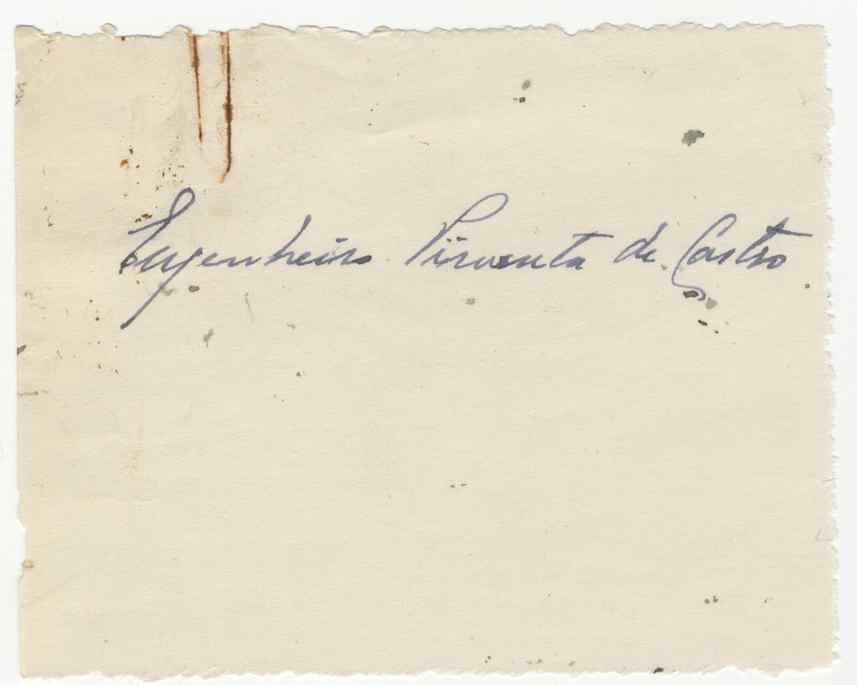 Engenheiro Pimenta de Castro